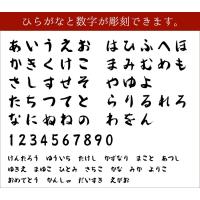 ひらがなと数字が彫刻できます。
あいうえお　はひふへほ
かきくけこ　まみむめも
さしすせそ　やゆよ
たちつてと　らりるれろ
なにぬねの　わをん
1234567890
けんたろう ゆういち たけし かずなり まこと あつし
ゆきえ まゆこ ひとみ さちこ かな みか よりこ
おめでとう かんしゃ だいすき えがお